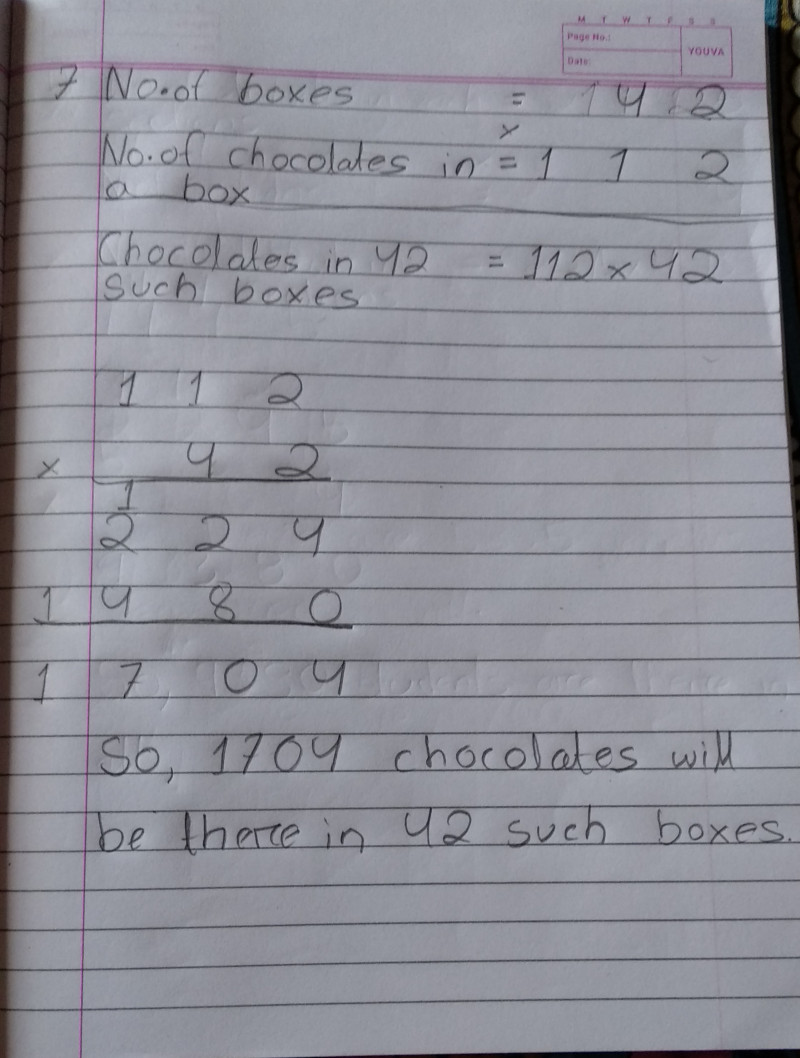 M T W T F S S
Page No.:
YOUVA
Date:
7 No.of boxes = 4 2
×
No.of chocolates in = 1 1 2
a box
Chocolates in 42 = 112 × 42
such boxes
1 1 2
× 4 2
1
2 2 4
1 4 8 0
1 7 0 4
So, 1704 chocolates will
be there in 42 such boxes.